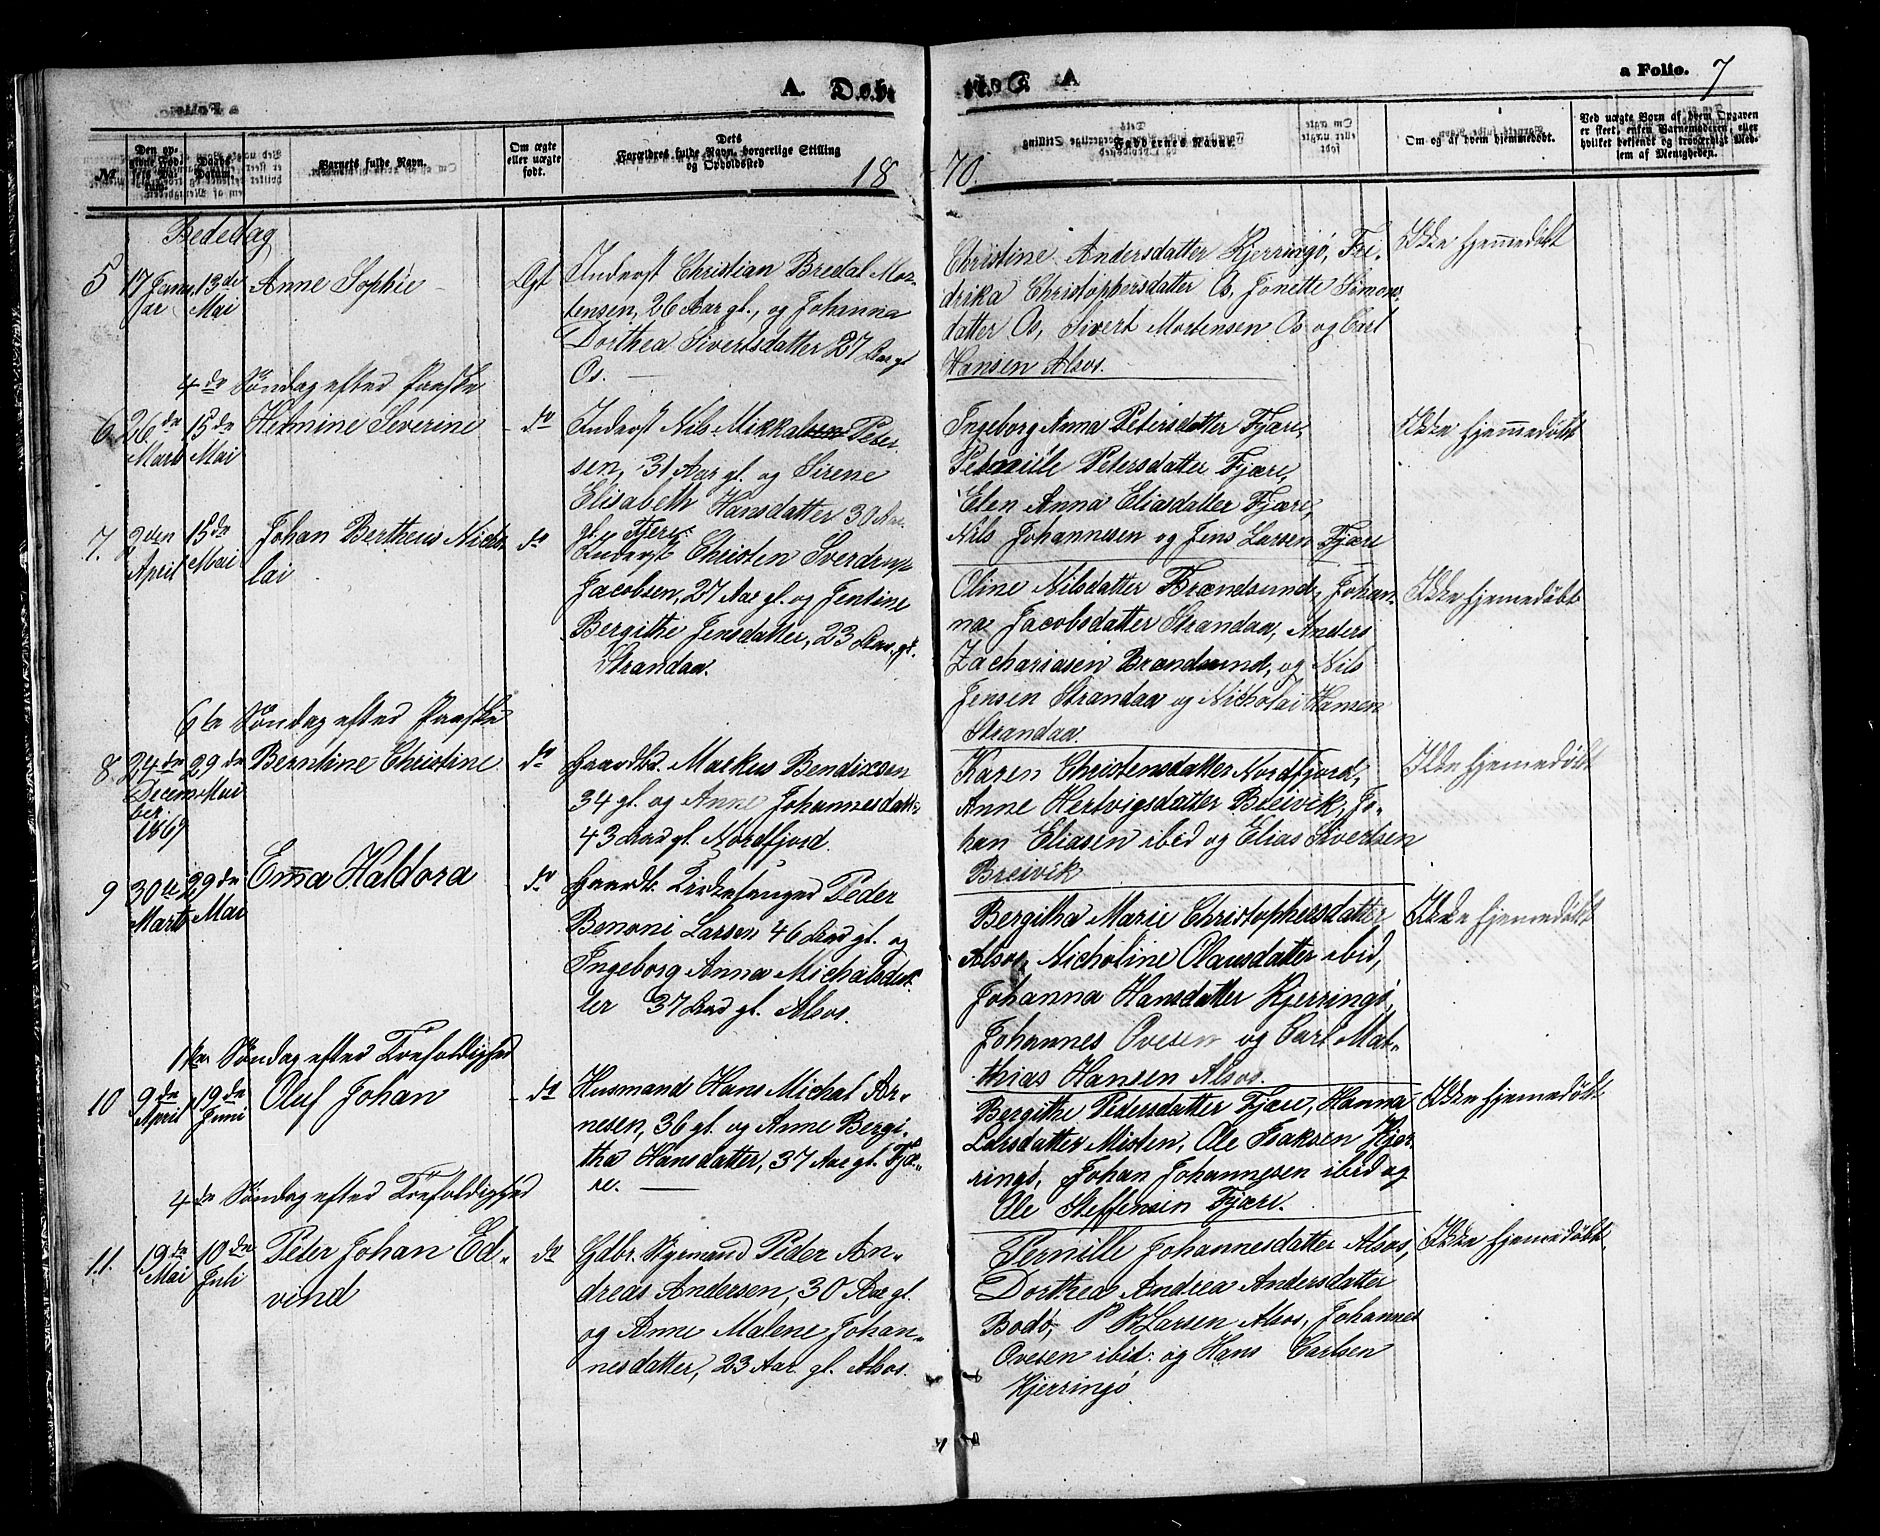 A. Døb- te A
a Folio. 7
№
Den op-
givne Fød-
sels Da-
tum.
Daabs
Datum.
Barnets fulde Navn.
Om ægte
eller uægte
født.
Dets
Forældres fulde Navn, borgerlige Stilling
og Opholdssted
Faddernes Navne.
Om og af hvem hjemmedøbt.
Ved uægte Børn af hvem Opgaven
er skeet, enten Barnemoderen, eller
hvilket bekjendt og troværdigt Med-
lem af Menigheden.
18 70.
Bededag
5
17 Janu-
ar
13de
Mai
Anne Sophie
Ægt
Inderst Christian Bredal Mor-
tensen, 26 Aar gl., og Johanna
Dorthea Sivertsdatter 27 Aar gl.
Os.
Christine Andersdatter Kjerringø, Fri-
drika Christophersdatter Os, Jonette Simons
datter Os, Sivert Mortensen Os og Carl
Hansen Alsos.
Ikke hjemmedøbt
4de Søndag efter Paaske
6.
26de
Marts
15de
Mai
Helmine Severine
do
Inderst Nils Mikkalsen Peter-
sen, 31 Aar gl. og Sirene
Elisabeth Hansdatter 30 Aar
gl. Fjære.
Ingeborg Anna Petersdatter Fjære,
Petrnille Petersdatter Fjære,
Elen Anna Eliasdatter Fjære,
Nils Johannesen og Jens Larsen Fjære
Ikke hjemmedøbt
7.
2den
April
15de
Mai
Johan Bertheus Nicho-
lai
do
Inderst Christen Sverdrup
Jacobsen, 27 Aar gl. og Jentine
Bergithe Jensdatter, 23 Aar gl.
Strandaa.
Oline Nilsdatter Brændsund, Johan-
na Jacobsdatter Strandaa, Anders
Zachariasen Brændsund, og Nils
Jensen Strandaa og Nicholai Hansen
Strandaa.
Ikke hjemmedøbt
6te Søndag efter Paaske
8.
24de
Decem-
ber
1869
29de
Mai
Berntine Christine
do
Gaardbr. Markus Bendixsen
34 gl. og Anne Johannesdatt.
43 Aar gl. Nordfjord.
Karen Christensdatter Nordfjord,
Anne Hertvigsdatter Breivik, Jo-
han Eliasen ibid og Elias Sivertsen
Breivik
Ikke hjemmedøbt
9
30te
Marts
29de
Mai
Ema Haldora
do
Gaardb. Kirkesanger Peder
Benoni Larsen 46 Aar gl. og
Ingeborg Anna Michalsdat-
ter 37 Aar gl. Alsos.
Bergitha Marie Christophersdatter
Alsos, Nicholine Olausdatter ibid,
Johanna Hansdatter Kjerringø,
Johannes Ovesen og Carl Mat-
thias Hansen Alsos.
Ikke hjemmedøbt
1ste Søndag efter Trefoldighed
10
9de
April
19de
Juni
Oluf Johan
do
Husmand Hans Michal Ar-
nesen, 36 gl. og Anne Bergi-
tha Hansdatter, 37 Aar gl. Fjæ-
re.
Bergithe Petersdatter Fjære, Hanna
Larsdatter Misten, Ole Isaksen Kjer-
ringø, Johan Johannesen ibid og
Ole Steffensen Fjære.
Ikke hjemmedøbt
4de Søndag efter Trefoldighed
11.
19de
Mai
10de
Juli
Peter Johan Ed-
vind
do
Gdbr. Styrmand Peder An-
dreas Andersen, 30 Aar gl.
og Anne Malene Johan-
nesdatter, 23 Aar gl. Alsos.
Pernille Johannesdatter Alsos,
Dorthea Andrea Andersdatter
Bodø, P B Larsen Alsos, Johannes
Ovesen ibid. og Hans Carlsen
Kjerringø
Ikke hjemmedøbt.